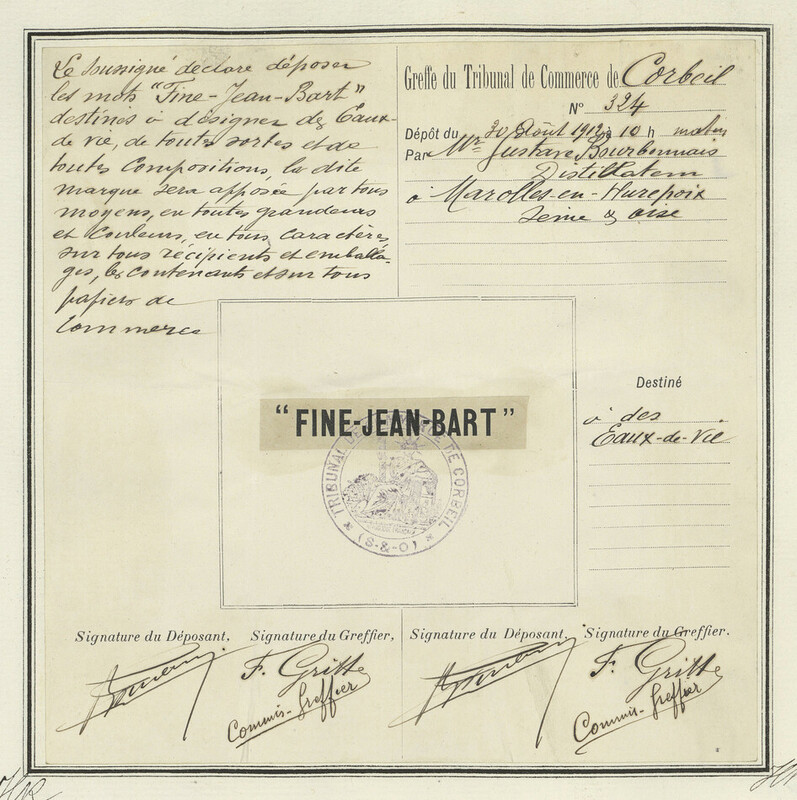 Le soussigné declare déposer
les mots "Fine-Jean-Bart"
destinés à désigner des Eaux-
de vie, de toutes sortes et de
toutes compositions, la dite
marque sera apposée par tous
moyens, en toutes grandeurs
et couleurs, en tous caractères,
sur tous récipients et emballa-
ges, les contenants et sur tous
papiers de
Commerce
Greffe du Tribunal de Commerce de Corbeil
N° 324
Dépôt du 30 Août 1912 à 10 h matin
Par Mr Gustave Bourbonnais
Distillateur
à Marolles-en-Hurepoix
Seine & Oise
"FINE-JEAN-BART"
TRIBUNAL DE COMMERCE DE CORBEIL
(S-&-O)
Destiné
à des
Eaux-de-Vie
Signature du Déposant, Signature du Greffier,
F. Gritte
Commis-Greffier
Signature du Déposant, Signature du Greffier.
F. Gritte
Commis-Greffier